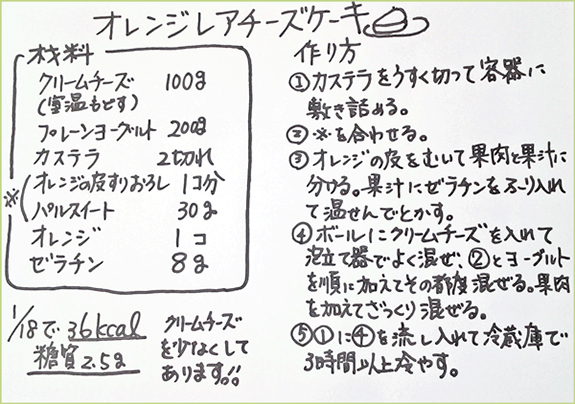 オレンジレアチーズケーキ
材料
クリームチーズ 100g
(室温もどす)
プレーンヨーグルト 200g
カステラ 2切れ
※
オレンジの皮すりおろし 1コ分
パルスイート 30g
オレンジ 1コ
ゼラチン 8g
1/18で36kcal
糖質2.5g
クリームチーズ
を少なくして
あります!!
作り方
①カステラをうすく切って容器に
敷き詰める。
②※を合わせる。
③オレンジの皮をむいて果肉と果汁に
分ける。果汁にゼラチンをふり入れ
て温せんでとかす。
④ボールにクリームチーズを入れて
泡立て器でよく混ぜ、②とヨーグルト
を順に加えてその都度混ぜる。果肉
を加えてざっくり混ぜる。
⑤①に④を流し入れて冷蔵庫で
3時間以上冷やす。